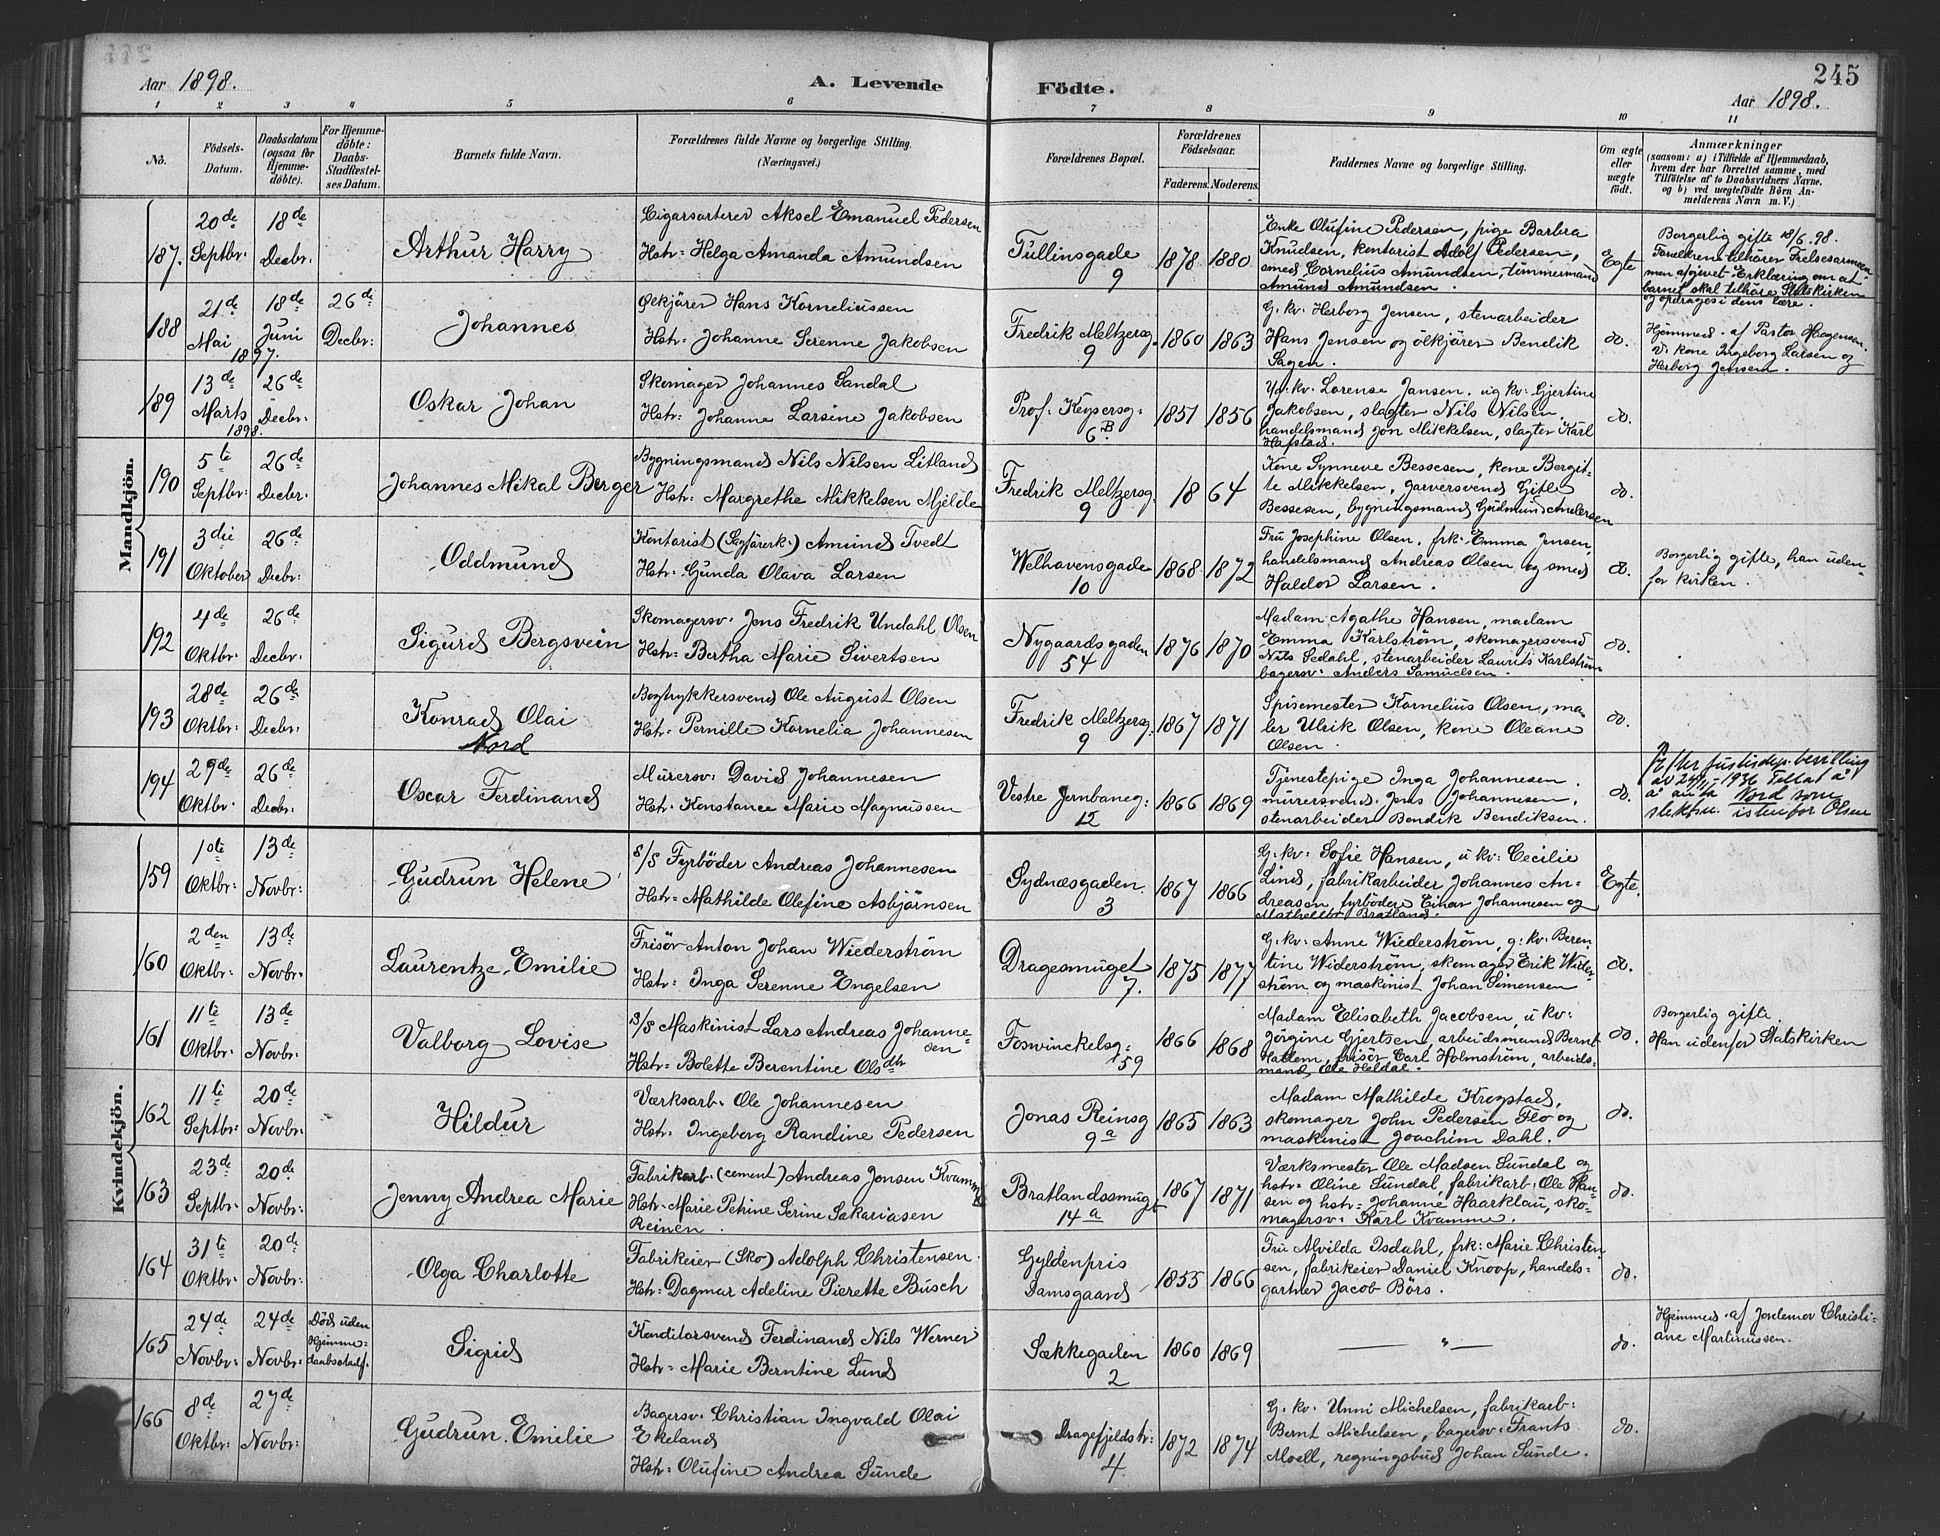 245
Aar 1898.
A. Levende Födte.
Aar 1898.
1 2 3 4 5 6 7 8 9 10 11
No.
Födsels-Datum.
Daabsdatum (ogsaa for Hjemme-döbte).
For Hjemme-döbte: Daabs-Stadfæstel-ses Datum.
Barnets fulde Navn.
Forældrenes fulde Navne og borgerlige Stilling. (Næringsvei.)
Forældrenes Bopæl.
Forældrenes Födselsaar.
Faderens. Moderens.
Faddernes Navne og borgerlige Stilling.
Om ægte eller uægte födt.
Anmærkninger
(saasom: a) i Tilfælde af Hjemmedaab, hvem der har forrettet samme, med Tilföielse af to Daabsvidners Navne, og b) ved uægtefödte Börn An-melderens Navn m. V.)
Mandkjön.
187. 20de Septbr: 18de Decbr:
Arthur Harry
Cigarsorterer Aksel Emanuel Pedersen
Hstr: Helga Amanda Amundsen
Tullinsgade 9
1878 1880
Enke Olufine Pedersen, pige Barbra
Knudsen, kontorist Adolf Pedersen,
smed Cornelius Amundsen, tømmermand
Amund Amundsen.
Egte
Borgerlig gifte 18/6.98.
Forældrene tilhører Frelsesarmeen
men afgivet Erklæring om at
barnet skal tilhøre Statskirken
og opdrages i dens lære.
188 21de Mai 1897. 18de Juni 26de Decbr:
Johannes
Ølkjører Hans Korneliussen
Hstr: Johanne Serenne Jakobsen
Fredrik Meltzersg. 9
1860 1863
G. kv. Herborg Jensen, stenarbeider
Hans Jensen og ølkjører Bendik
Sagen.
do.
Hjemmed. af Pastor Haagensen.
V. kone Ingeborg Larsen og
Herborg Jensen.
189 13de Marts 1898. 26de Decbr:
Oskar Johan
Skomager Johannes Sandal
Hstr: Johanne Larsine Jakobsen
Prof: Keysersg: 6B
1851 1856
G. kv. Lorense Jansen, ug kv: Gjertine
Jakobsen, slagter Nils Nilsen,
handelsmand Jon Mikkelsen, slagter Karl
Hafstad.
do.
190 5te Septbr: 26de Decbr.
Johannes Mikal Berger
Bygningsmand Nils Nilsen Litland
Hstr: Margrethe Mikkelsen Mjelde
Fredrik Meltzersg. 9
18 64
Kone Synneve Bessesen, kone Bergit-
te Mikkelsen, garversvend Gitle
Bessesen, bygningsmand Gudmund Andersen
do.
191 3die Oktober 26de Decbr:
Oddmund
Kontorist (Sagførerk.) Amund Tvedt
Hstr: Gunda Olava Larsen
Welhavensgade 10
1868 1872
Fru Josephine Olsen, frk: Emma Jensen,
handelsmand Andreas Olsen og smed
Haldor Larsen.
do.
Borgerlig gifte, han uden-
for kirken.
192 4de Oktbr: 26de Decbr:
Sigurd Bergsvein
Skomagersv. Jens Fredrik Undahl Olsen
Hstr: Bertha Marie Sivertsen
Nygaardsgaden 54
1876 1870
Madam Agathe Hansen, madam
Emma Karlstrøm, skomagersvend
Nils Sedahl, stenarbeider Laurits Karlstrøm
bagersv. Anders Samuelsen.
do.
193 28de Oktbr: 26de Decbr:
Konrad Olai
Nord
Bogtrykkersvend Ole August Olsen
Hstr: Pernille Kornelia Johannesen
Fredrik Meltzersg. 9
1867 1871
Spisemester Kornelius Olsen, ma-
ler Ulrik Olsen, kone Oleane
Olsen.
do.
Efter justisdep. bevilling
av 1936 tillat å
å anta Nord som
slektsn. istenfor Olsen
194 29de Oktbr. 26de Decbr:
Oscar Ferdinand
Murersv. David Johannesen
Hstr: Konstance Marie Magnussen
Vestre Jernbaneg: 12
1866 1869
Tjenestepige Inga Johannesen,
murersvend Jens Johannesen,
stenarbeider Bendik Bendiksen.
do.
Kvindekjön.
159 1ste Oktbr: 13de Novbr:
Gudrun Helene
s/s Fyrbøder Andreas Johannesen
Hstr: Mathilde Olefine Asbjørnsen
Sydnæsgaden. 3
1867 1866
G. kv: Sofie Hansen, u. kv: Cecilie
Lind, fabrikarbeider Johannes An-
dreasen, fyrbødere Einar Johannesen og
Bratland.
Egte.
160 2den Oktbr: 13de Novbr:
Laurentze Emilie
Frisør Anton Johan Wiederstrøm
Hstr: Inga Serenne Engelsen
Dragesmuget 7.
1875 1877
G. kv: Anne Wiederstrøm, g. kv: Beren-
tine Widerstrøm, skomager Erik Wider-
strøm og maskinist Johan Simensen
do.
161 11te Oktbr: 13de Novbr:
Valborg Lovise
s/s Maskinist Lars Andreas Johanne-
sen
Hstr: Bolette Berentine Olsdtr
Foswinckelsg: 59
1866 1868
Madam Elisabeth Jacobsen, u kv:
Jørgine Gjertsen, arbeidsmand Bernt
Hatlem, frisør Carl Holmstrøm, arbeids-
mand Ole Heldal.
do.
Borgerlig gifte.
Han udenfor Statskirken
162 11te Septbr: 20de Novbr:
Hildur
Værksarb. Ole Johannesen
Hstr: Ingeborg Randine Pedersen
Jonas Reinsg 9a
1865 1863
Madam Mathilde Krogstad,
skomager John Pedersen Flo og
maskinist Joachim Dahl.
do.
163 23de Septbr: 20de Novbr:
Jenny Andrea Marie
Fabrikarb. (cement) Andreas Jonsen Kvamme
Hstr: Marie Petrine Serine Sakariasen
Reinen.
Bratlandssmuget 14a
1867 1871
Værksmester Ole Madsen Sundal og
hstr: Oline Sundal, fabrikarb. Ole Han-
sen og hstr: Johanne Haarklau, sko-
magersv: Karl Kvamme.
do.
164 31te Oktbr: 20de Novbr:
Olga Charlotte
Fabrikeier (Sko) Adolph Christensen
Hstr: Dagmar Adeline Pierette Busch
Gyldenpris
Damsgaard
1855 1866
Fru Alvilda Isdahl, frk: Marie Christen
sen, fabrikeier Daniel Knoop, handels-
gartner Jacob Börs.
do.
165 24de Novbr: 24de Novbr: Död uden Hjemme-daabsstadf.
Sigrid
Konditorsvend Ferdinand Nils Werner
Hstr: Marie Berntine Lund
Sækkegaden 2
1860 1869
— " —
do.
Hjemmed. af Jordemor Christi-
ane Martinussen.
166 8de Oktbr: 27de Novbr:
Gudrun Emilie
Bagersv. Christian Ingvald Olai
Ekeland
Hstr: Olufine Andrea Sunde
Dragefjeldstr: 4
1872 1874
G. kv. Unni Michelsen, fabrikarb:
Bernt Michelsen, bagersv: Frants
Moell, regningsbud Johan Sunde.
do.